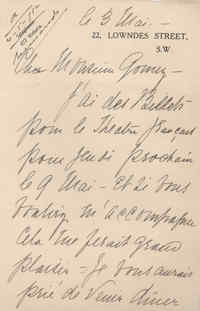 le 3 Mai. —
22, LOWNDES STREET,
S.W.
Cher Monsieur
J'ai des Billets
pour le Théatre français
pour Jeudi prochain
le 9 Mai — et si vous
vouliez m'accompagner
cela me ferait grand
plaisir — Je vous aurais
prié de venir diner